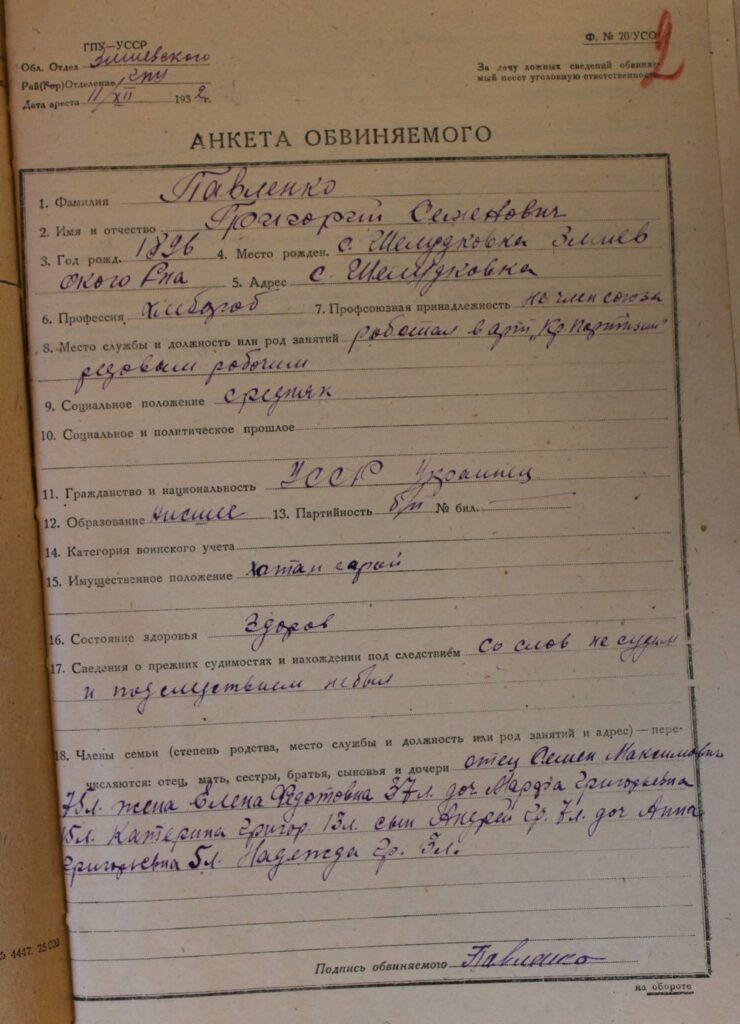 ГПУ—УССР
Ф. № 20/УСО
2
Обл. Отдел Змиевского
Рай(Гор)Отделение ГПУ
Дата ареста 11/XII 1932 г.
За дачу ложных сведений обвиняе-
мый несет уголовную ответственность
АНКЕТА ОБВИНЯЕМОГО
1. Фамилия Павленко
2. Имя и отчество Григорий Семенович
3. Год рожд. 1896 4. Место рожден. с. Шелудковка Змиев
ского Р-на 5. Адрес с. Шелудковка
6. Профессия хлебороб 7. Профсоюзная принадлежность не член союза
8. Место службы и должность или род занятий работал в арт. „Кр Партизан"
редовым рабочим
9. Социальное положение средняк
10. Социальное и политическое прошлое
11. Гражданство и национальность УССР Украинец
12. Образование низшее 13. Партийность б/п № бил.
14. Категория воинского учета
15. Имущественное положение Хата и сарай
16. Состояние здоровья Здоров
17. Сведения о прежних судимостях и нахождении под следствием Со слов не судим
и под следствием небыл
18. Члены семьи (степень родства, место службы и должность или род занятий и адрес) — пере-
числяются: отец, мать, сестры, братья, сыновья и дочери отец Семен Максимович
75л. жена Елена Федотовна 37л. доч. Марфа Григорьевна
15л. Катерина Григор. 13л. сын Андрей Гр. 7л. доч Анна
Григорьевна 5л. Надежда Гр. 3л.
4447. 25 000
Подпись обвиняемого Павленко
на обороте